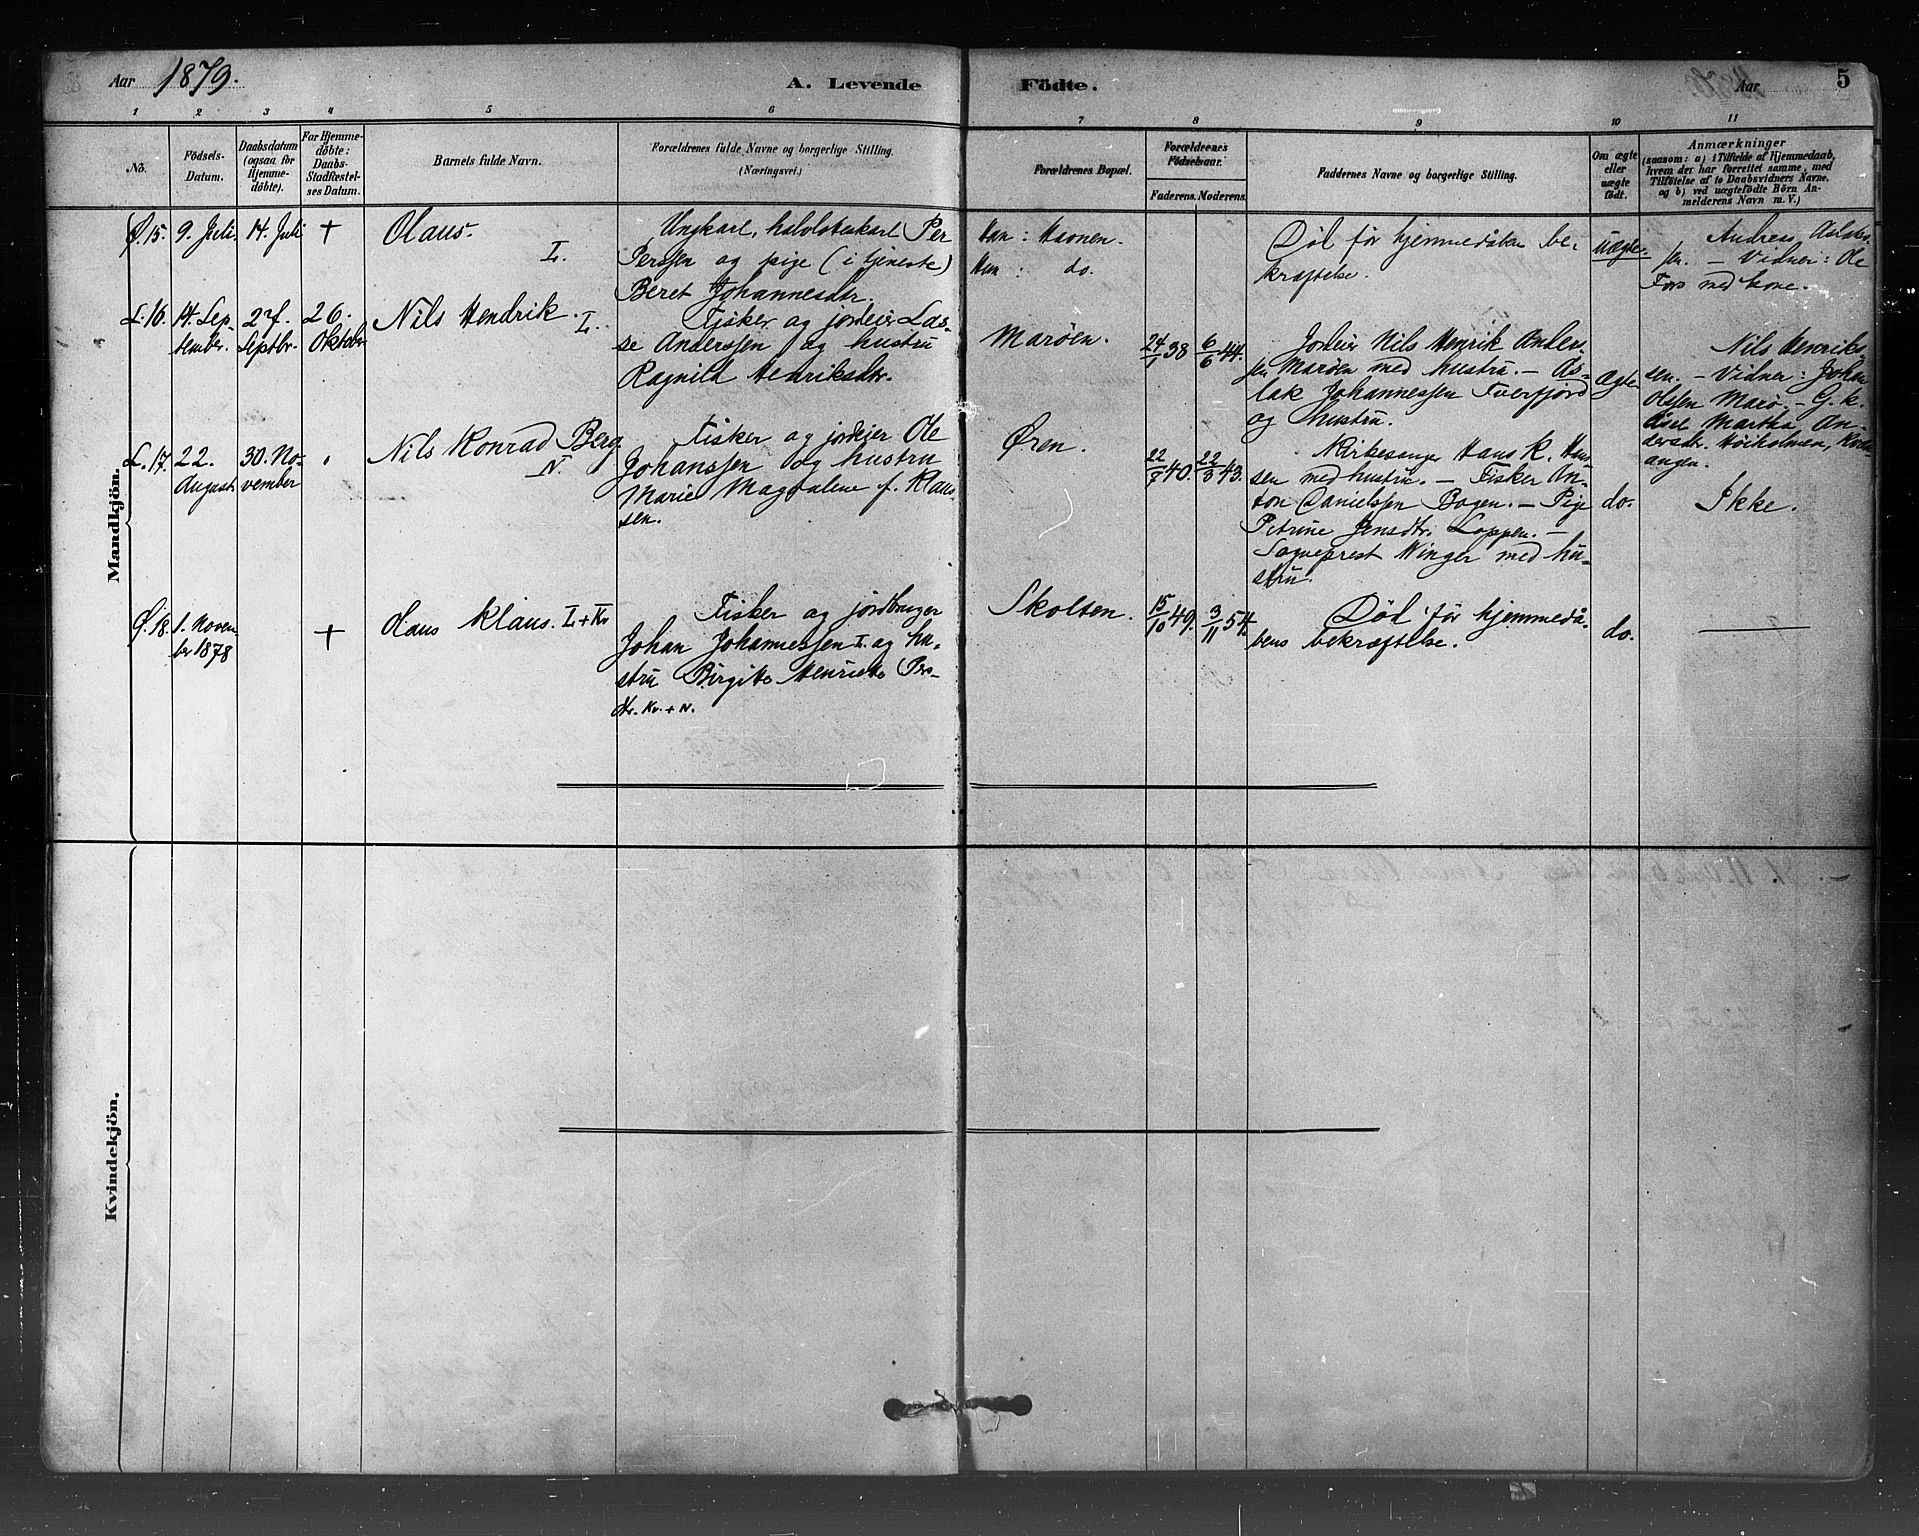 Aar 1879.
A. Levende Födte.
Aar
5
1 2 3 4 5 6 7 8 9 10 11
No.
Födsels-
Datum.
Daabsdatum
(ogsaa for
Hjemme-
döbte).
For Hjemme-
döbte:
Daabs-
Stadfæstel-
ses Datum.
Barnets fulde Navn.
Forældrenes fulde Navne og borgerlige Stilling.
(Næringsvei.)
Forældrenes Bopæl.
Forældrenes
Födselsaar.
Faderens. Moderens.
Faddernes Navne og borgerlige Stilling.
Om ægte
eller
uægte
födt.
Anmærkninger
(saasom: a) i Tilfælde af Hjemmedaab,
hvem der har forrettet samme, med
Tilföielse af to Daabsvidners Navne.
og b) ved uægtefödte Börn An-
melderens Navn m. V.)
Mandkjön.
Ø. 15.
9. Juli.
14. Juli
+
Olaus.
L.
Ungkarl, halvlotskarl Per
Perssen og pige (i tjeneste)
Beret Johannesdtr.
Han: Havnen.
Hun: do.
Död för hjemmedåben be-
kræftelse.
uægte.
Andreas Aslaks-
sen. – Vidner: Ole
Fors med kone.
L. 16.
14. Sep-
tember.
27.
Septbr.
26.
Oktober
Nils Hendrik.
L.
Fisker og jordeier Las-
se Anderssen og hustru
Ragnild Henriksdtr.
Maröen.
24/1 38
6/6 44.
Jordeier Nils Henrik Anders-
sen Maröen med hustru. – As-
lak Johannessen Tverfjord
og hustru.
ægte
Nils Henriks-
sen. – Vidner: Johan
Olssen Marö. – G. k.
Martha An-
dersdtr. Höiholmen, Kvæn-
angen.
L. 17.
22.
August
30. No-
vember
Nils Konrad Berg
N.
Fisker og jordejer Ole
Johanssen og hustru
Marie Magdalene f. Klaus-
sen.
Øren.
22/7 40.
22/3 43.
Kirkesanger Hans K. Han-
sen med hustru. – Fisker An-
ton Danielssen Bogen. – Pige
Petrine Jensdtr. Loppen. –
Sogneprest Winger med hu-
stru.
do.
Ikke.
Ø. 18.
1. Novem-
ber 1878
+
Olaus Klaus. L + Kv
Fisker og jordbruger
Johan Johannessen L. og hu-
stru Birgitte Henriette Pers-
dtr. Kv. + N.
Skolten.
15/10 49.
3/11 54.
Död för hjemmedå-
bens bekræftelse.
do.
Kvindekjön.